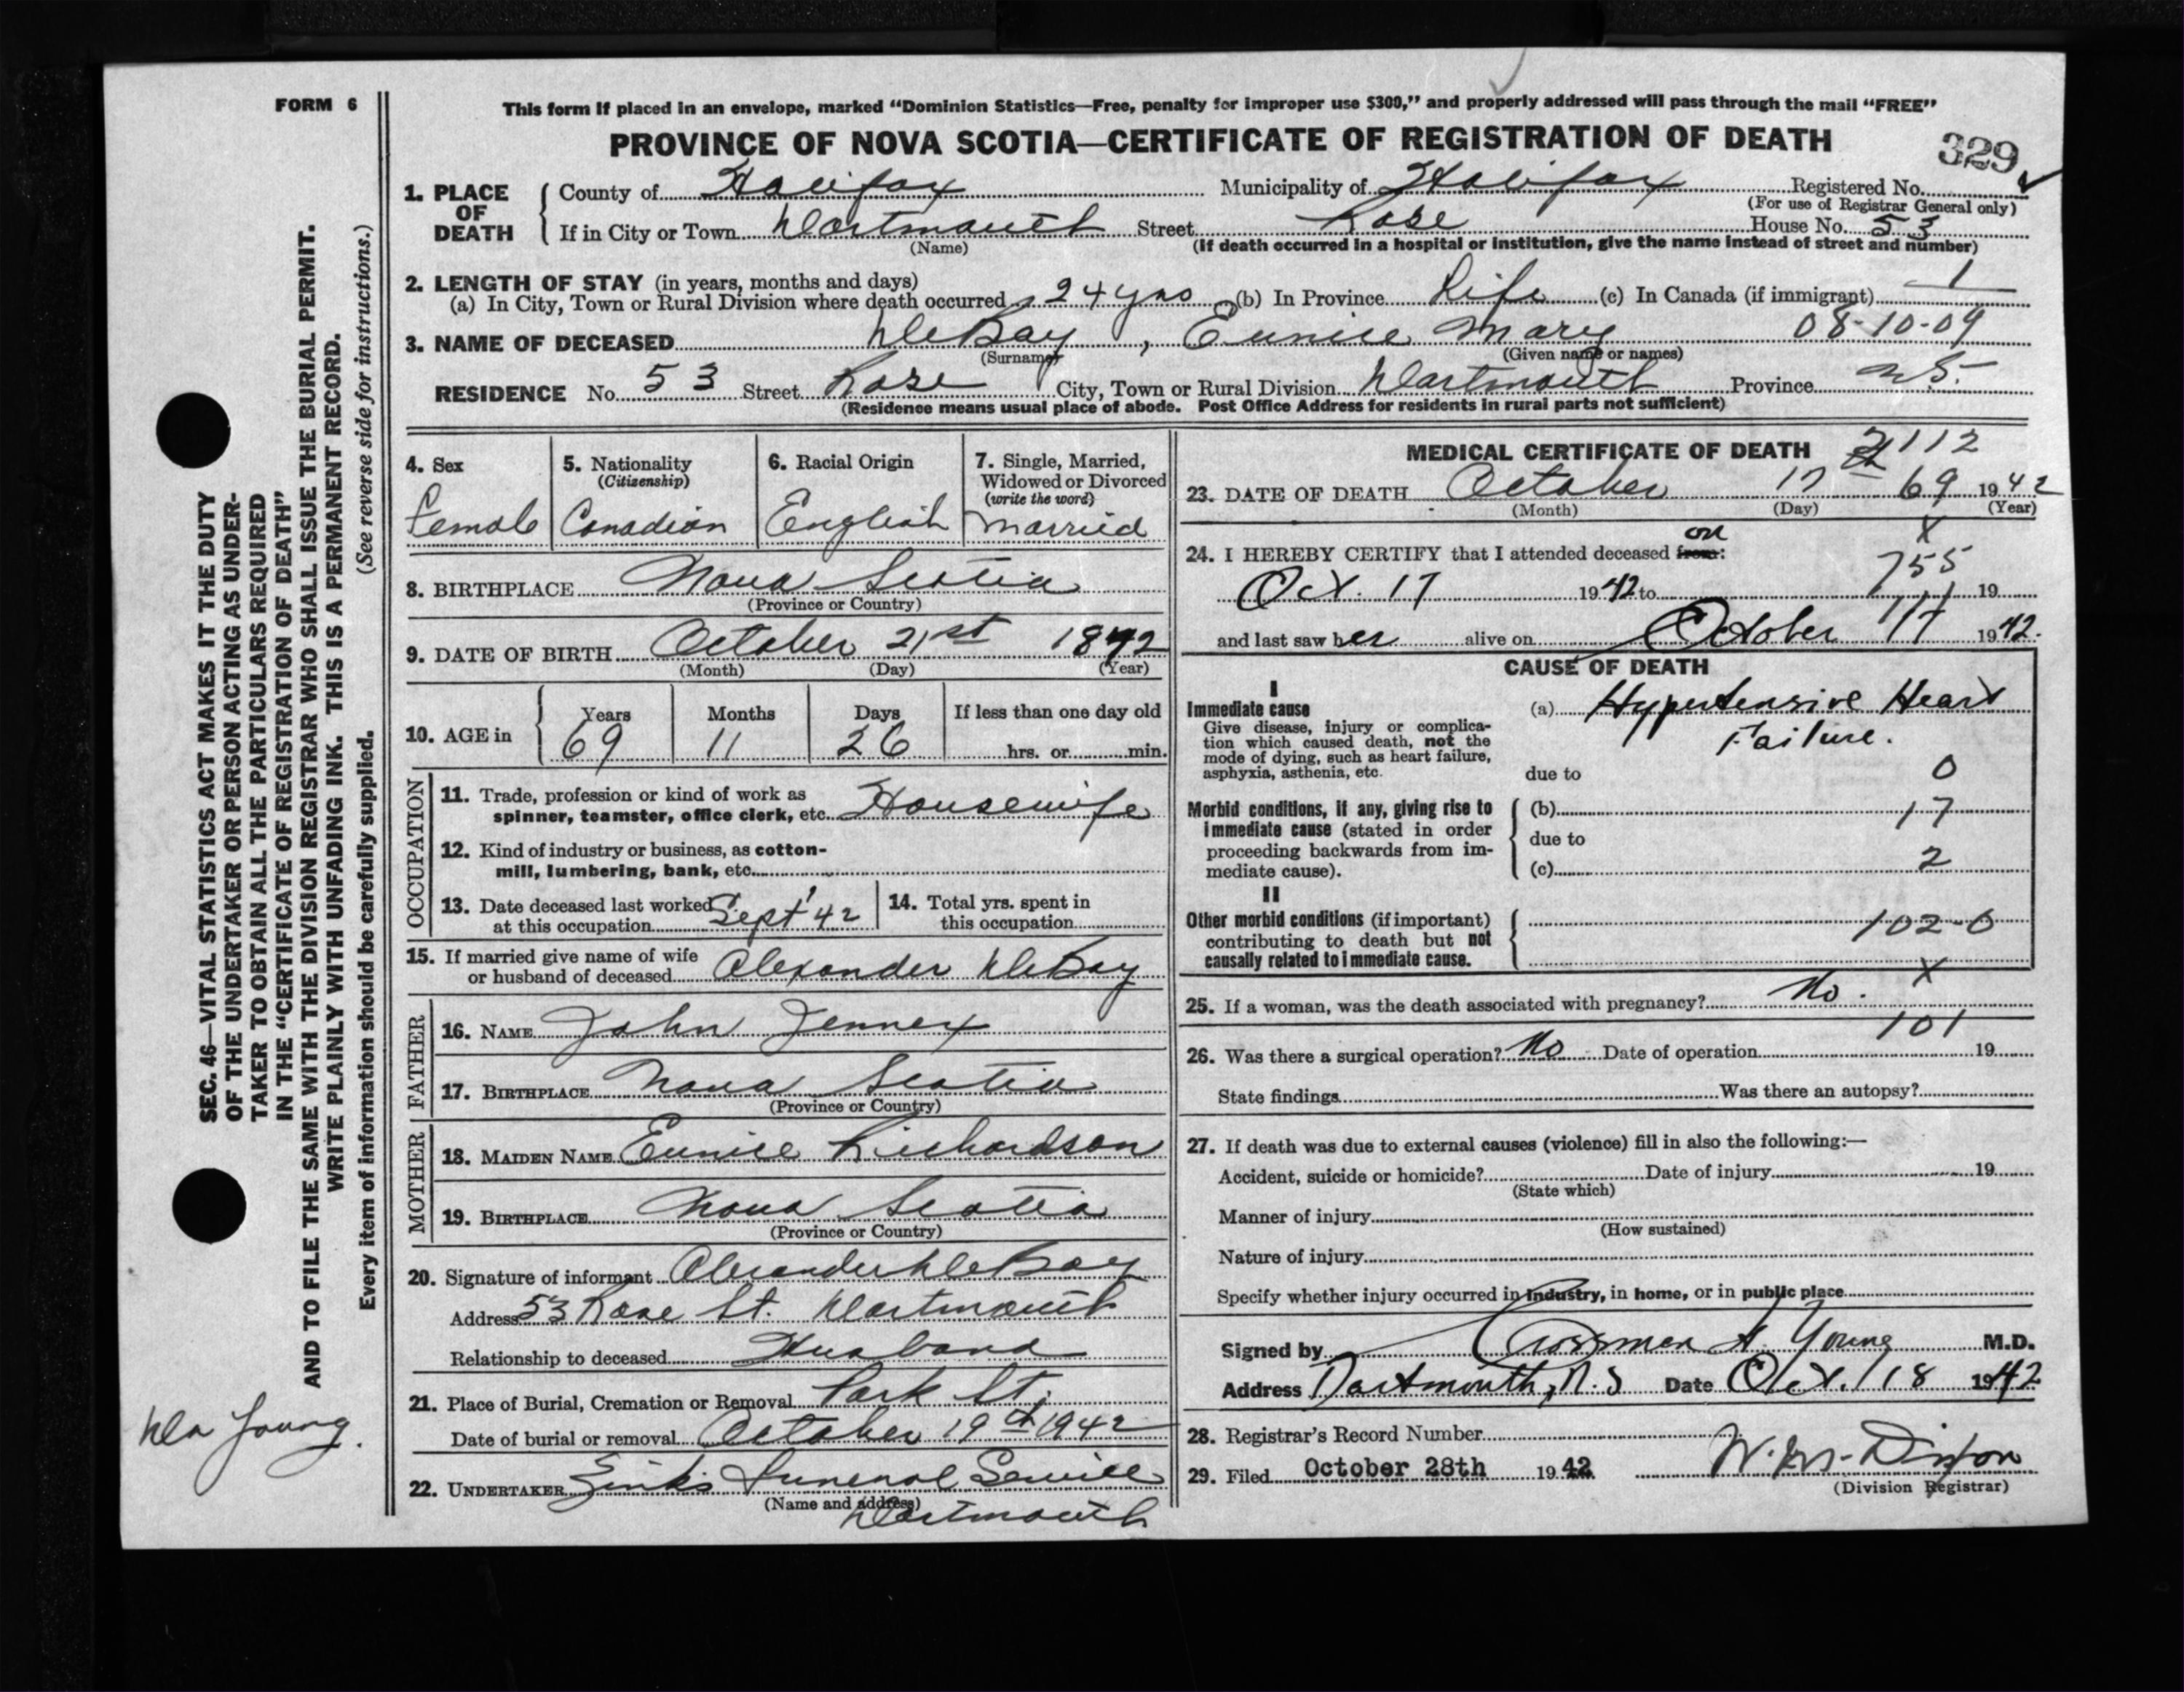 FORM 6
This form if placed in an envelope, marked “Dominion Statistics—Free, penalty for improper use $300,” and properly addressed will pass through the mail “FREE”
PROVINCE OF NOVA SCOTIA—CERTIFICATE OF REGISTRATION OF DEATH
329
1. PLACE OF DEATH
County of Halifax Municipality of Halifax Registered No.
(For use of Registrar General only)
If in City or Town Dartmouth Street Rose House No. 53
(Name) (If death occurred in a hospital or institution, give the name instead of street and number)
2. LENGTH OF STAY (in years, months and days)
(a) In City, Town or Rural Division where death occurred 24 yrs (b) In Province Life (c) In Canada (if immigrant) 1
3. NAME OF DECEASED DeBay, Eunice Mary 08-10-09
(Surname) (Given name or names)
RESIDENCE No. 53 Street Rose City, Town or Rural Division Dartmouth Province N.S.
(Residence means usual place of abode. Post Office Address for residents in rural parts not sufficient)
4. Sex
Female
5. Nationality
(Citizenship)
Canadian
6. Racial Origin
English
7. Single, Married, Widowed or Divorced
(write the word)
Married
8. BIRTHPLACE Nova Scotia
(Province or Country)
9. DATE OF BIRTH October 21st 1872
(Month) (Day) (Year)
10. AGE in
Years Months Days If less than one day old
69 11 26 hrs. or min.
OCCUPATION
11. Trade, profession or kind of work as
spinner, teamster, office clerk, etc. Housewife
12. Kind of industry or business, as cotton-
mill, lumbering, bank, etc.
13. Date deceased last worked
at this occupation Sept '42
14. Total yrs. spent in
this occupation
15. If married give name of wife
or husband of deceased Alexander DeBay
FATHER
16. NAME John Jennex
17. BIRTHPLACE Nova Scotia
(Province or Country)
MOTHER
18. MAIDEN NAME Eunice Richardson
19. BIRTHPLACE Nova Scotia
(Province or Country)
20. Signature of informant Alexander DeBay
Address 53 Rose St. Dartmouth
Relationship to deceased Husband
21. Place of Burial, Cremation or Removal Park St.
Date of burial or removal October 19th 1942
22. UNDERTAKER Zink's Funeral Service
(Name and address)
Dartmouth
MEDICAL CERTIFICATE OF DEATH
2112
23. DATE OF DEATH October 17 69 1942
(Month) (Day) (Year)
on X
24. I HEREBY CERTIFY that I attended deceased from:
755
Oct. 17 1942 to 19
and last saw her alive on October 17 1942.
CAUSE OF DEATH
I
Immediate cause
Give disease, injury or complica-
tion which caused death, not the
mode of dying, such as heart failure,
asphyxia, asthenia, etc.
(a) Hypertensive Heart
Failure.
due to 0
Morbid conditions, if any, giving rise to
immediate cause (stated in order
proceeding backwards from im-
mediate cause).
(b) 17
due to
(c) 2
II
Other morbid conditions (if important)
contributing to death but not
causally related to immediate cause.
102-0
X
25. If a woman, was the death associated with pregnancy? No.
101
26. Was there a surgical operation? No Date of operation 19
State findings Was there an autopsy?
27. If death was due to external causes (violence) fill in also the following:—
Accident, suicide or homicide? Date of injury 19
(State which)
Manner of injury
(How sustained)
Nature of injury
Specify whether injury occurred in industry, in home, or in public place
Signed by Young M.D.
Address Dartmouth, N.S Date Oct. 18 1942
28. Registrar's Record Number
29. Filed October 28th 1942
(Division Registrar)
SEC. 46—VITAL STATISTICS ACT MAKES IT THE DUTY
OF THE UNDERTAKER OR PERSON ACTING AS UNDER-
TAKER TO OBTAIN ALL THE PARTICULARS REQUIRED
IN THE “CERTIFICATE OF REGISTRATION OF DEATH”
AND TO FILE THE SAME WITH THE DIVISION REGISTRAR WHO SHALL ISSUE THE BURIAL PERMIT.
WRITE PLAINLY WITH UNFADING INK. THIS IS A PERMANENT RECORD.
Every item of information should be carefully supplied. (See reverse side for instructions.)
Dr Young.